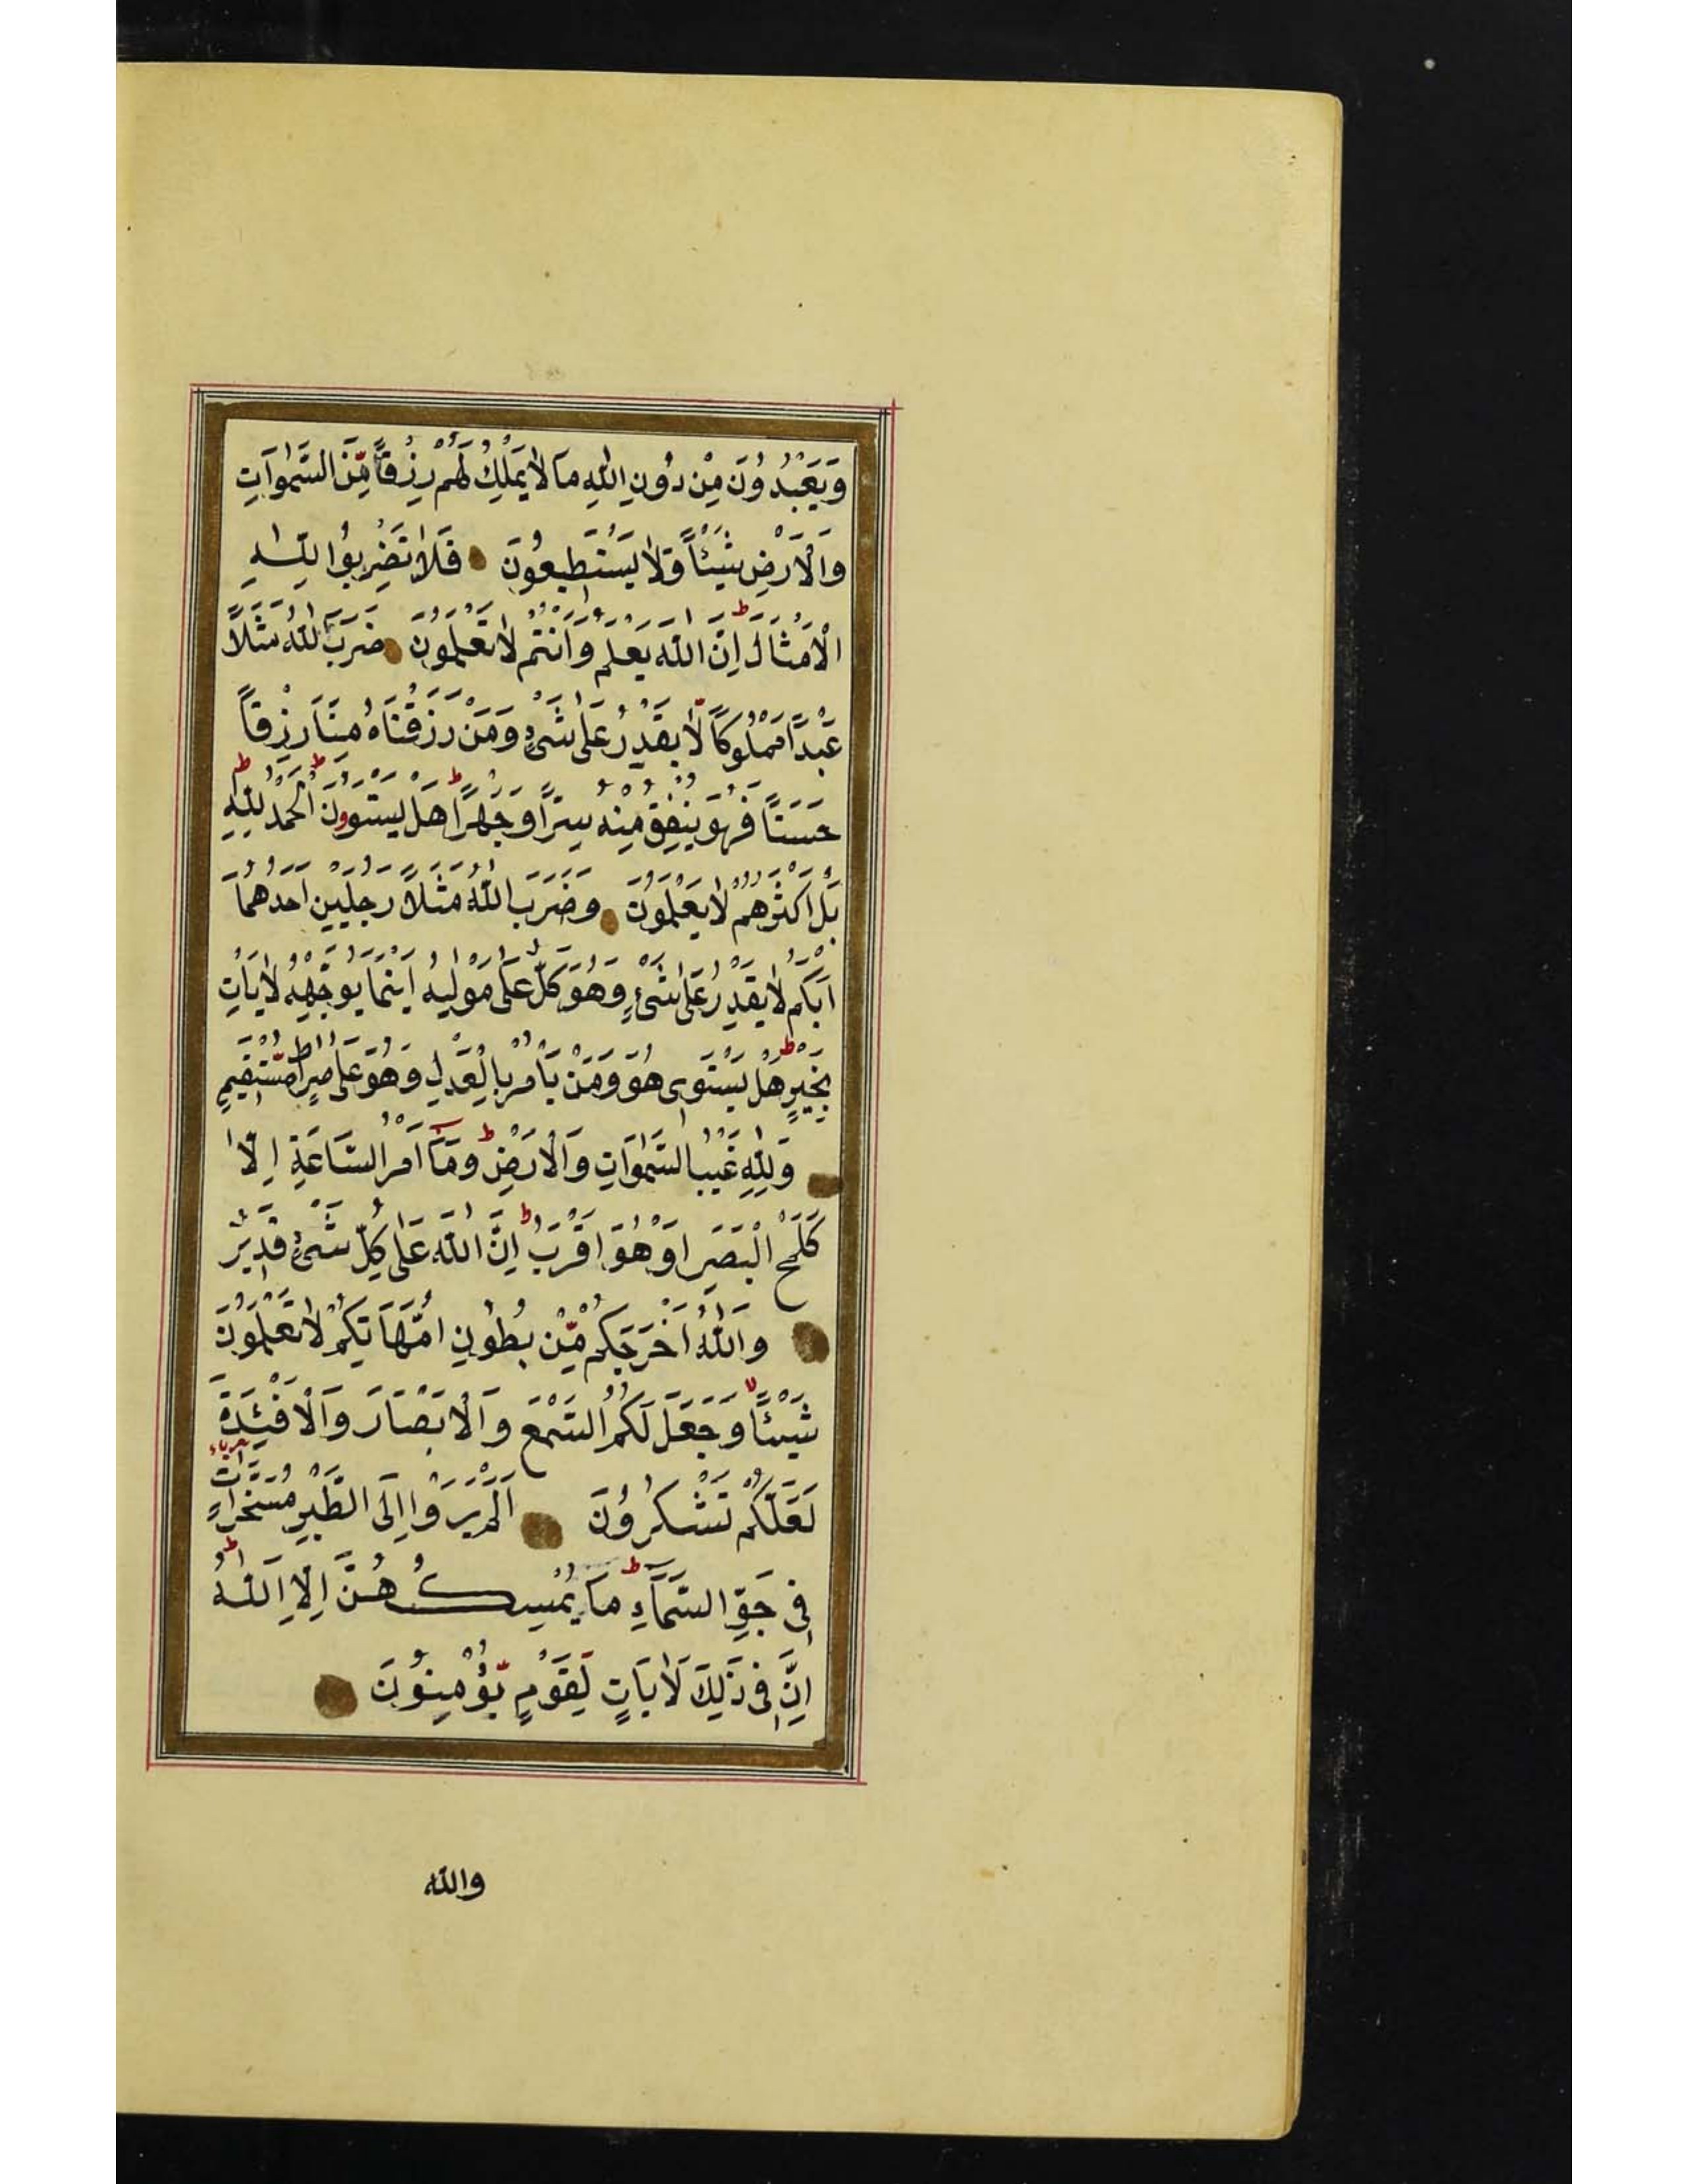 وَيَعْبُدُونَ مِنْ دُونِ اللّٰهِ مَا لَا يَمْلِكُ لَهُمْ رِزْقًا مِّنَ السَّمٰوَاتِ
وَالْاَرْضِ شَيْئًا وَّلَا يَسْتَطِيعُونَ فَلَا تَضْرِبُوا لِلّٰهِ
الْاَمْثَالَ ط اِنَّ اللّٰهَ يَعْلَمُ وَاَنْتُمْ لَا تَعْلَمُونَ ضَرَبَ اللّٰهُ مَثَلًا
عَبْدًا مَمْلُوكًا لَّا يَقْدِرُ عَلٰى شَىْءٍ وَمَنْ رَزَقْنَاهُ مِنَّا رِزْقًا
حَسَنًا فَهُوَ يُنْفِقُ مِنْهُ سِرًّا وَجَهْرًا ط هَلْ يَسْتَوُونَ ط اَلْحَمْدُ لِلّٰهِ ط
بَلْ اَكْثَرُهُمْ لَا يَعْلَمُونَ وَضَرَبَ اللّٰهُ مَثَلًا رَجُلَيْنِ اَحَدُهُمَا
اَبْكَمُ لَا يَقْدِرُ عَلٰى شَىْءٍ وَهُوَ كَلٌّ عَلٰى مَوْلٰيهُ اَيْنَمَا يُوَجِّهْهُ لَا يَاْتِ
بِخَيْرٍ ط هَلْ يَسْتَوِى هُوَ وَمَنْ يَاْمُرُ بِالْعَدْلِ وَهُوَ عَلٰى صِرَاطٍ مُّسْتَقِيمٍ
وَلِلّٰهِ غَيْبُ السَّمٰوَاتِ وَالْاَرْضِ ط وَمَٓا اَمْرُ السَّاعَةِ اِلَّا
كَلَمْحِ الْبَصَرِ اَوْ هُوَ اَقْرَبُ ط اِنَّ اللّٰهَ عَلٰى كُلِّ شَىْءٍ قَدِيرٌ
وَاللّٰهُ اَخْرَجَكُمْ مِّنْ بُطُونِ اُمَّهَاتِكُمْ لَا تَعْلَمُونَ
شَيْئًا لا وَجَعَلَ لَكُمُ السَّمْعَ وَالْاَبْصَارَ وَالْاَفْئِدَةَ
لَعَلَّكُمْ تَشْكُرُونَ اَلَمْ يَرَوْا اِلَى الطَّيْرِ مُسَخَّرَاتٍ
فِى جَوِّ السَّمَٓاءِ ط مَا يُمْسِكُهُنَّ اِلَّا اللّٰهُ ط
اِنَّ فِى ذٰلِكَ لَاٰيَاتٍ لِقَوْمٍ يُّؤْمِنُونَ
والله